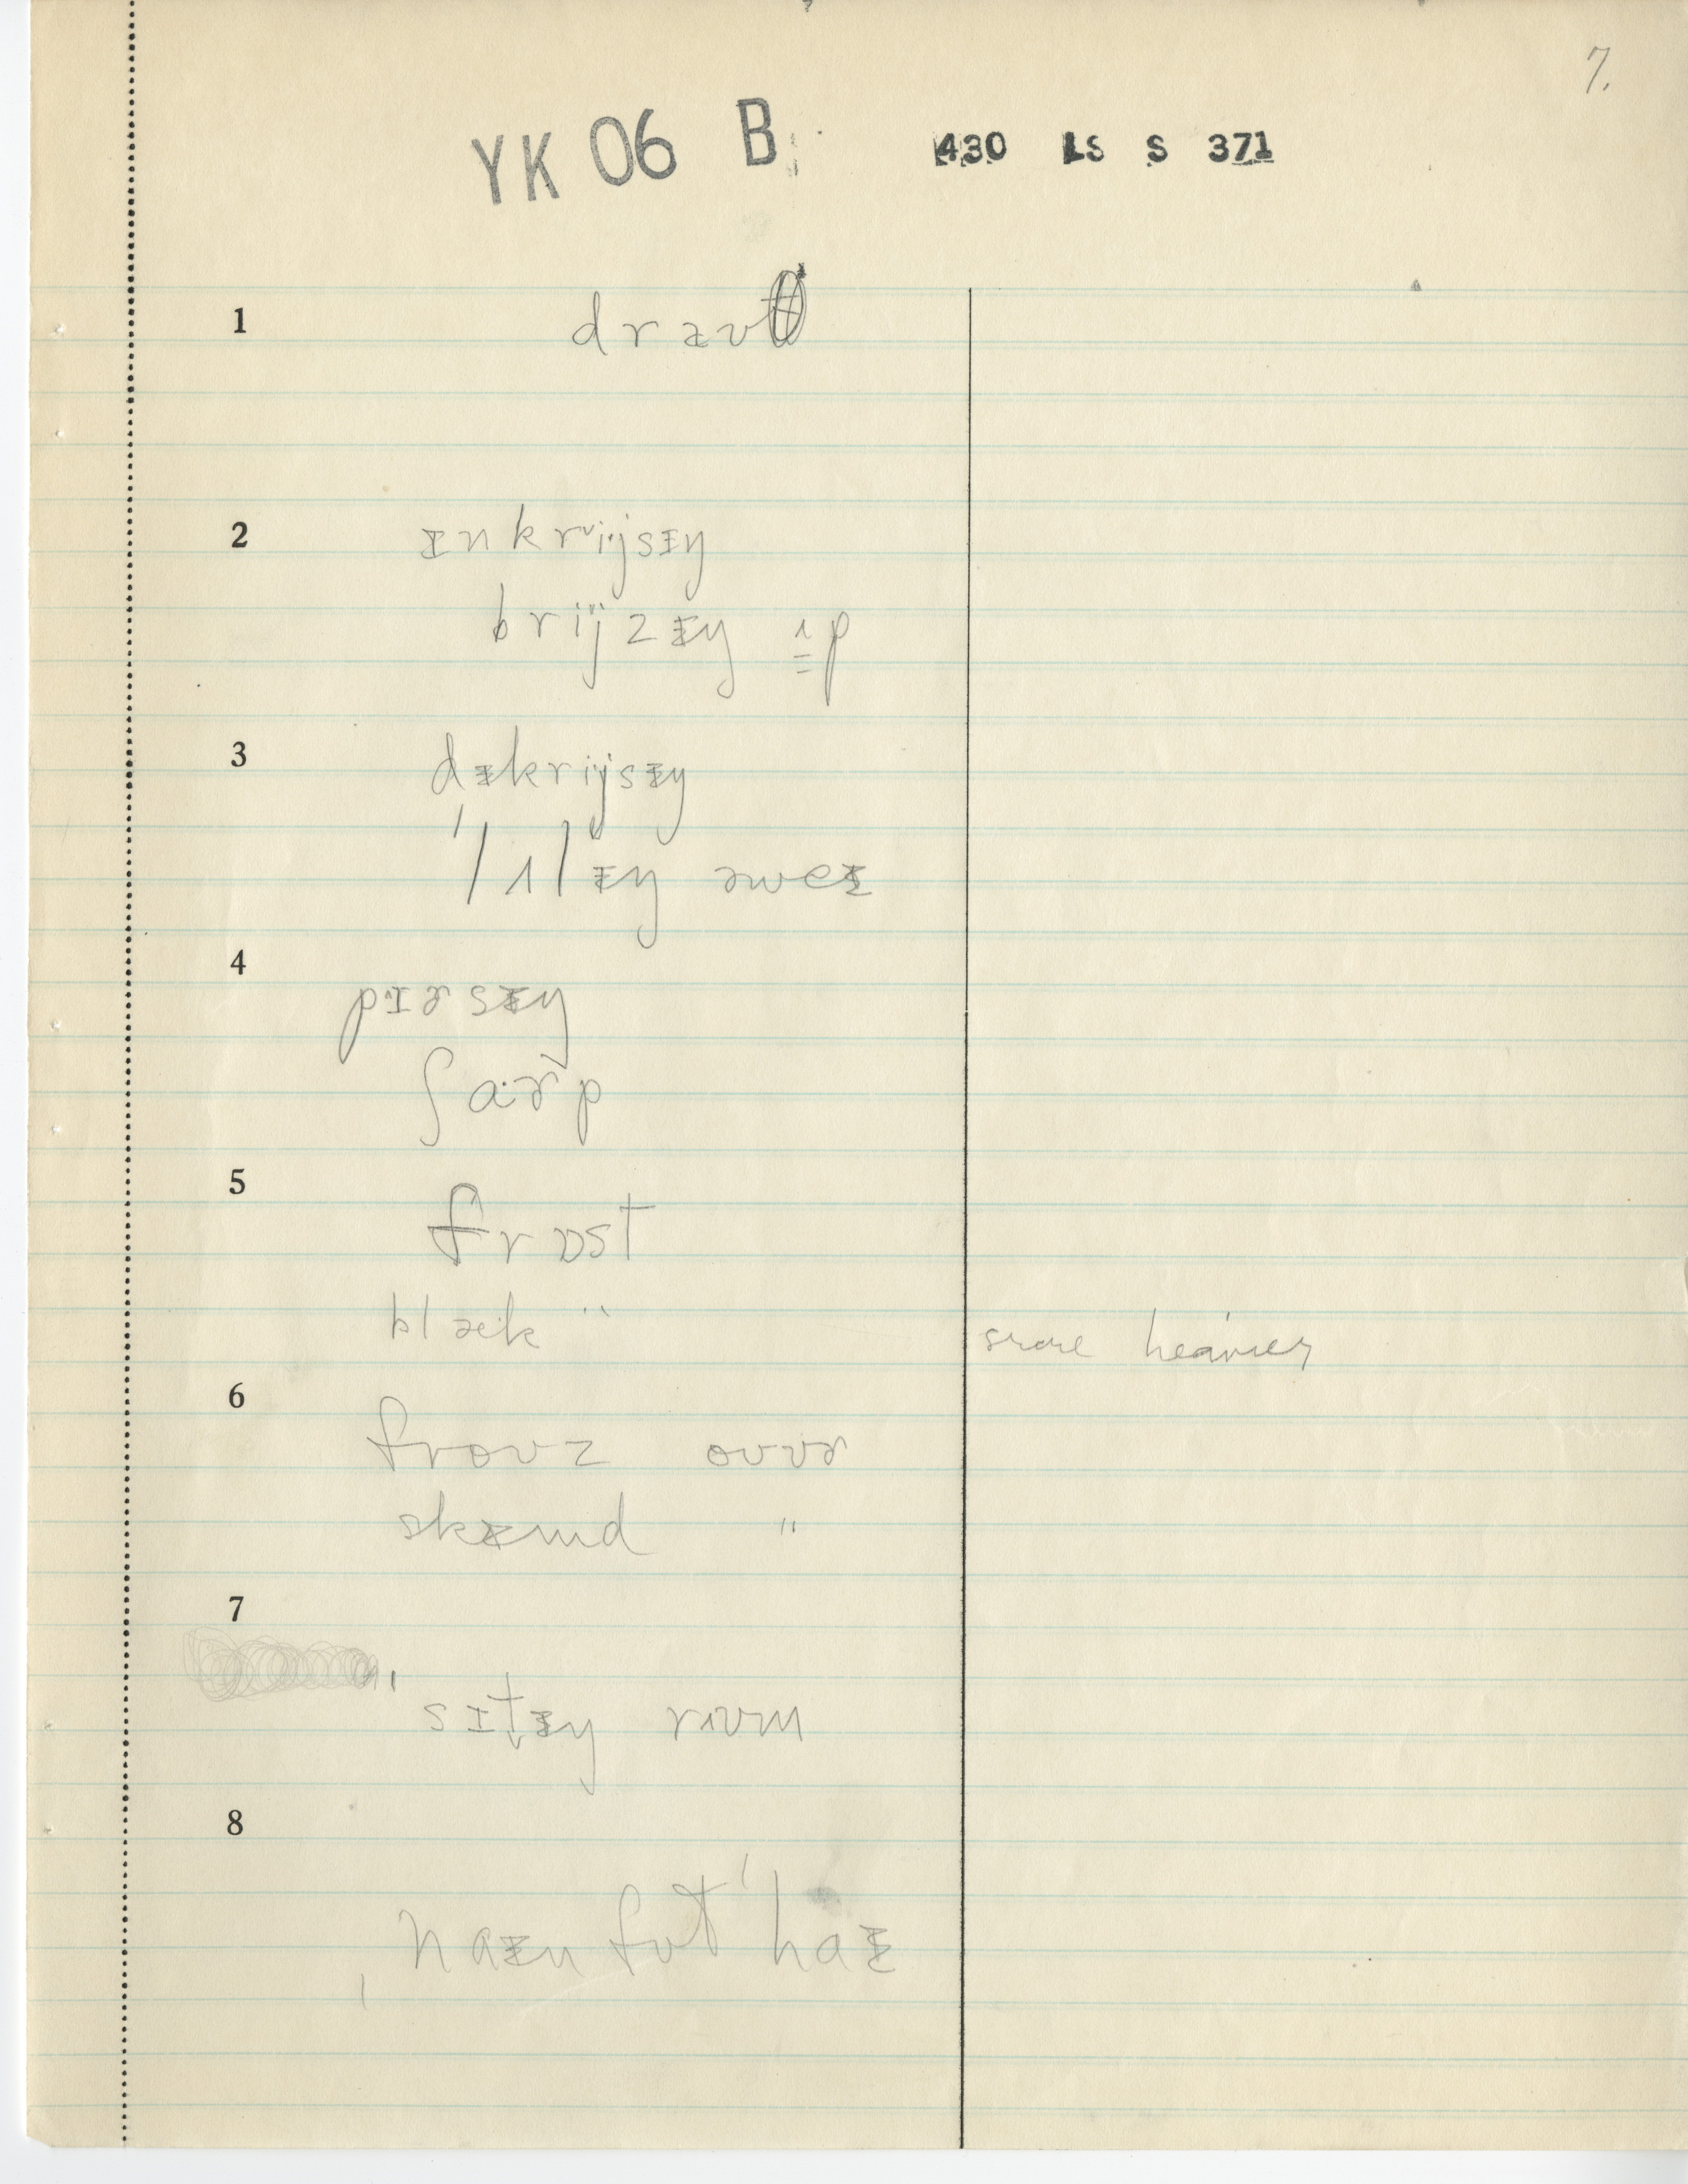 7.
YK 06 B 430 LS S 371
1
2
ɪnkrijsɪŋ
brijzɪŋ ʌp
3
dɪkrijsɪŋ
lʌlɪŋ əweɪ
4
pɪɚsɪŋ
ʃɑɚp
5
frɒst
blæk "
heavier
6
froʊz oʊvɚ
skɪmd "
7
sɪtɪŋ rʊum
8
naɪn fʊt haɪ